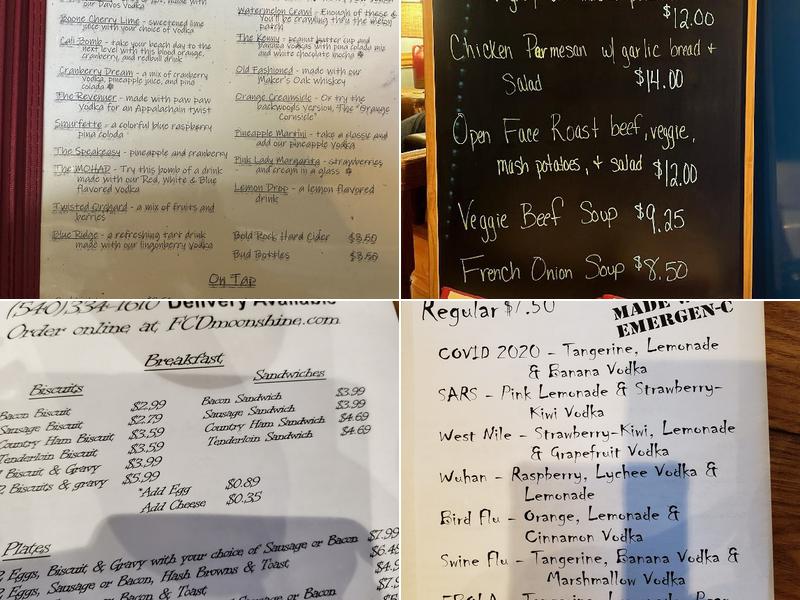 our Davos Vodka
Boone Cherry Lime - sweetened lime
juice with your choice of vodka
Cali Bomb - take your beach day to the
next level with this blood orange,
cranberry, and redbull drink
Cranberry Dream - a mix of cranberry
vodka, pineapple juice, and pina
colada
The Revenuer - made with paw paw
vodka for an Appalachain twist
Smurfette - a colorful blue raspberry
pina colada
The Speakeasy - pineapple and cranberry
The MOHAD - Try this bomb of a drink
made with our Red, White & Blue
flavored vodka
Twisted Orchard - a mix of fruits and
berries
Blue Ridge - a refreshing tart drink
made with our lingonberry vodka
Watermelon Crawl - Enough of these &
You'll be crawling thru the melon
patch
The Kenny - peanut butter cup and
banana vodkas with pina colada mix
and white chocolate mocha
Old Fashioned - made with our
Maker's Oak whiskey
Orange Creamsicle - Or try the
backwoods version, The "Orange
Cornsicle"
Pineapple Martini - take a classic and
add our pineapple vodka
Pink Lady Margarita - strawberries
and cream in a glass
Lemon Drop - a lemon flavored
drink
Bold Rock Hard Cider $3.50
Bud Bottles $3.50
On Tap
$12.00
Chicken Parmesan w/ garlic bread +
Salad $14.00
Open Face Roast beef, veggie,
mash potatoes, + salad $12.00
Veggie Beef Soup $9.25
French Onion Soup $8.50
(540)334-1610 Delivery Available
Order online at FCDmoonshine.com
Breakfast
Biscuits
Bacon Biscuit $2.99
Sausage Biscuit $2.79
Country Ham Biscuit $3.59
Tenderloin Biscuit $3.59
Biscuit & Gravy $3.99
2 Biscuits & gravy $5.99
*Add Egg $0.89
Add Cheese $0.35
Sandwiches
Bacon Sandwich $3.99
Sausage Sandwich $3.99
Country Ham Sandwich $4.69
Tenderloin Sandwich $4.69
Plates
2 Eggs, Biscuit & Gravy with your choice of Sausage or Bacon $7.99
Eggs, Sausage or Bacon, Hash Browns & Toast
Bacon & Toast
Regular $7.50
MADE
EMERGEN-C
COVID 2020 - Tangerine, Lemonade
& Banana Vodka
SARS - Pink Lemonade & Strawberry-
Kiwi Vodka
West Nile - Strawberry-Kiwi, Lemonade
& Grapefruit Vodka
Wuhan - Raspberry, Lychee Vodka &
Lemonade
Bird Flu - Orange, Lemonade &
Cinnamon Vodka
Swine Flu - Tangerine, Banana Vodka &
Marshmallow Vodka